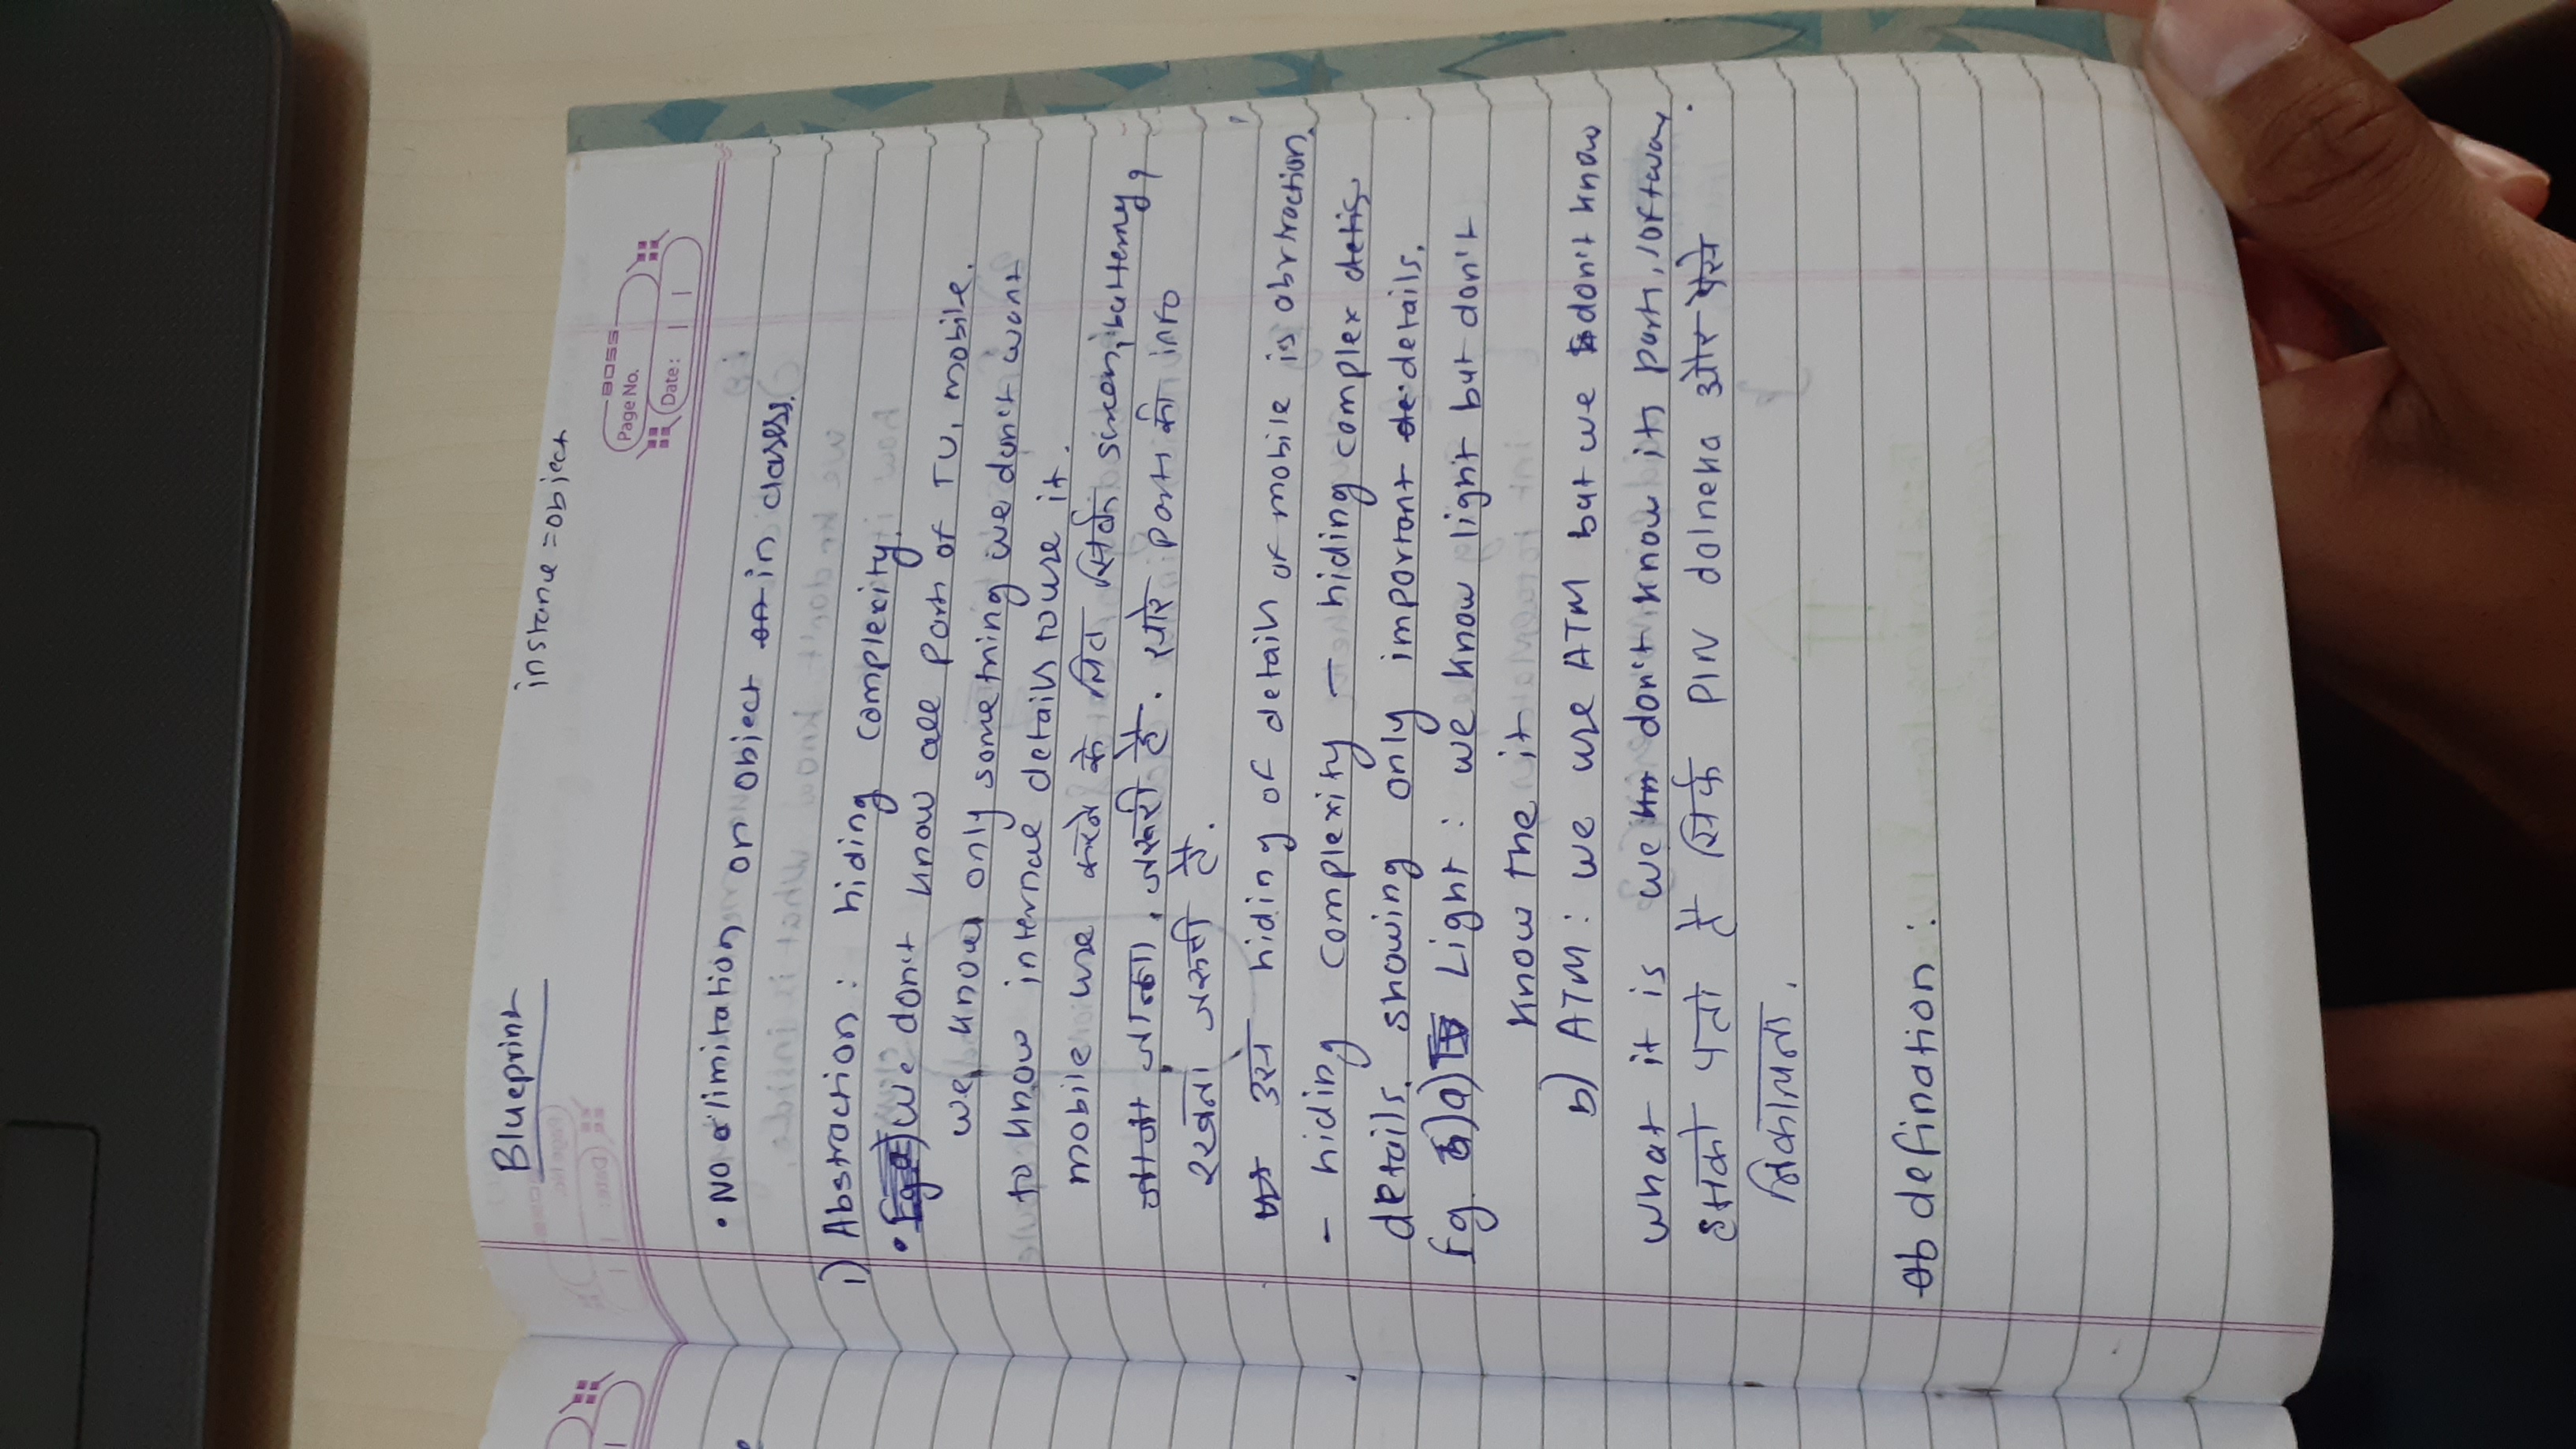 Blueprint
instance = object
BOSS
Page No.
Date:
• No limitation on object in classes.
1) Abstraction : hiding complexity.
• We don't know all part of TV, mobile.
we know only something we don't want
to know internal details to use it.
mobile use करने के लिए सिर्फ simcan, battemy
जरूरी है. सारे part की info
रखना जरूरी है.
hiding of details of mobile is abstraction.
- hiding complexity - hiding complex
details, showing only important details.
Eg. a) Light : we know light but don't
know the it
b) ATM : we use ATM but we don't know
what it is we don't know its parts, software
हमको पता है सिर्फ PIN dalneka और पैसे
निकालना.
defination :